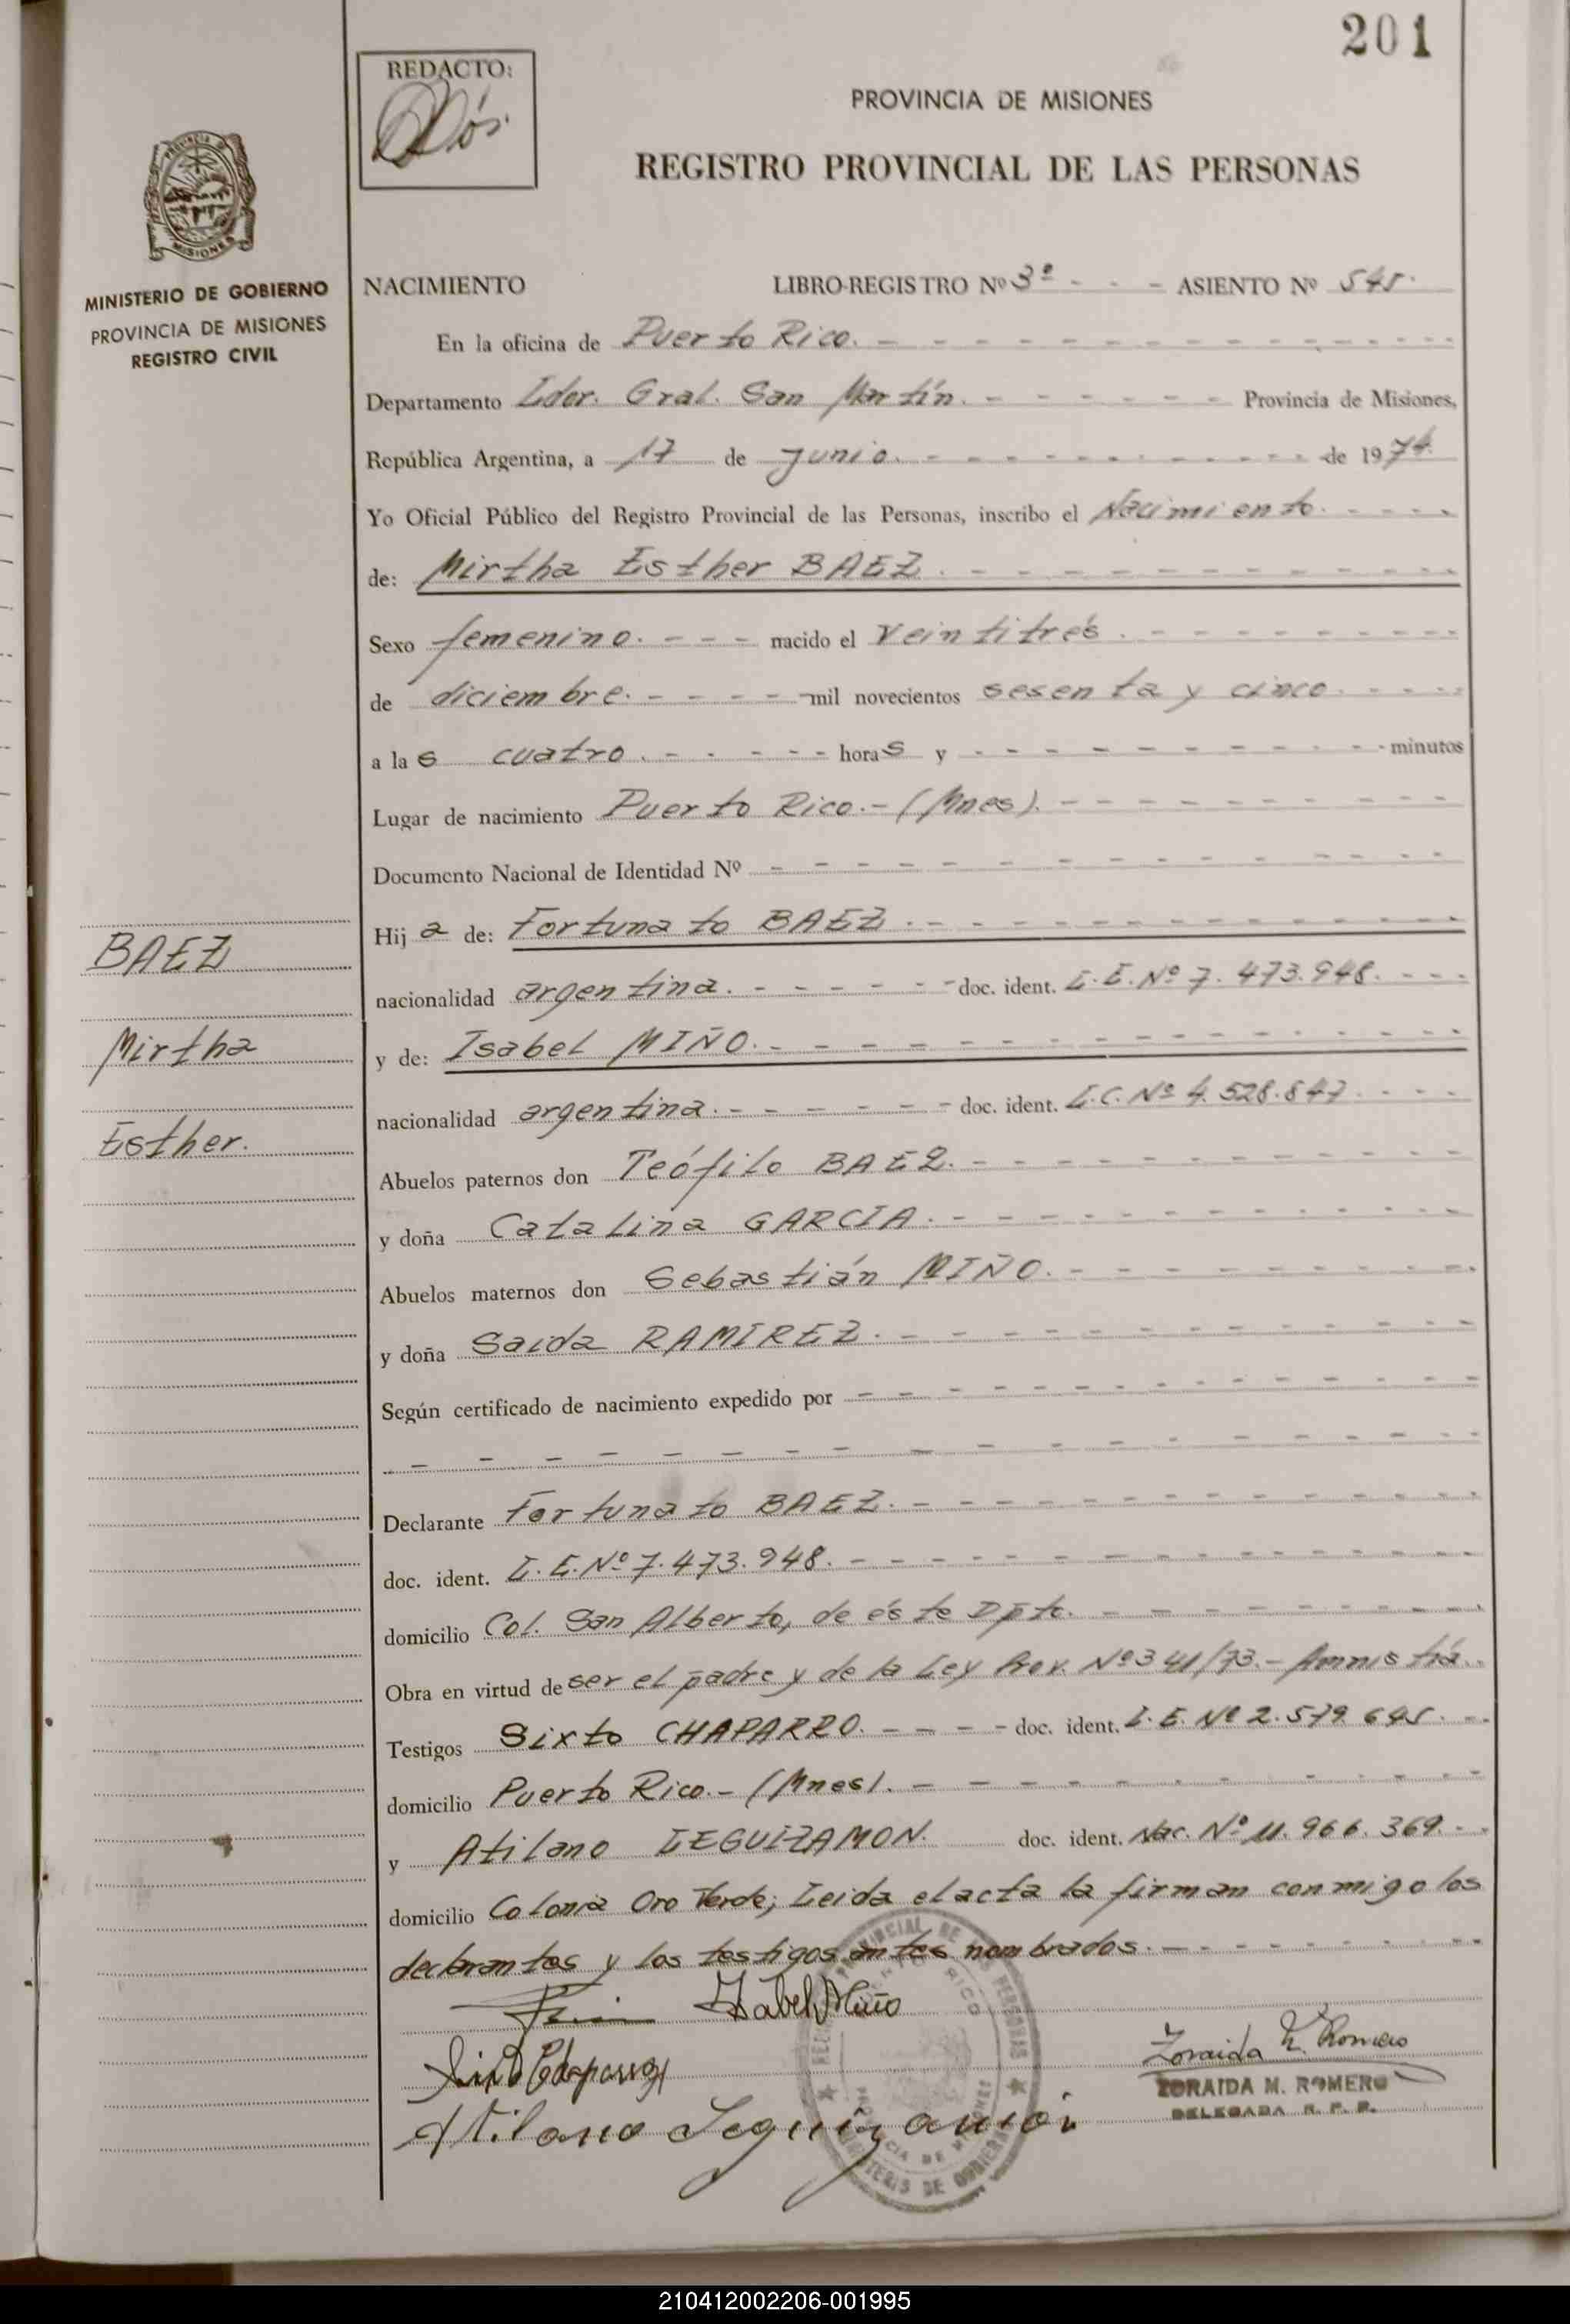 201
REDACTO:
PROVINCIA DE MISIONES
REGISTRO PROVINCIAL DE LAS PERSONAS
MISIONES
MINISTERIO DE GOBIERNO
PROVINCIA DE MISIONES
REGISTRO CIVIL
NACIMIENTO LIBRO-REGISTRO Nº 3º - - - ASIENTO Nº 545.
En la oficina de Puerto Rico.
Departamento Ldor. Gral. San Martín. Provincia de Misiones,
República Argentina, a 17 de junio. de 1974.
Yo Oficial Público del Registro Provincial de las Personas, inscribo el Nacimiento.
de: Mirtha Esther BAEZ.
Sexo femenino. nacido el Veintitrés.
de diciembre. mil novecientos sesenta y cinco.
a las cuatro. horas y - - - minutos
Lugar de nacimiento Puerto Rico.- (Mnes).
Documento Nacional de Identidad Nº
Hija de: Fortunato BAEZ.
nacionalidad argentina. doc. ident. L.E.Nº 7.473.948.
y de: Isabel MIÑO.
nacionalidad argentina. doc. ident. L.C.Nº 4.528.847.
Abuelos paternos don Teófilo BAEZ.
y doña Catalina GARCIA.
Abuelos maternos don Sebastián MIÑO.
y doña Saida RAMIREZ.
Según certificado de nacimiento expedido por
Declarante Fortunato BAEZ.
doc. ident. L.E.Nº 7.473.948.
domicilio Col. San Alberto, de éste Dpto.
Obra en virtud de ser el padre y de la Ley Prov. Nº 341/73.- Amnistía.
Testigos Sixto CHAPARRO. doc. ident. L.E. Nº 2.579.695.
domicilio Puerto Rico.- (Mnes).
y Atilano LEGUIZAMON. doc. ident. Nac. Nº 11.966.369.
domicilio Colonia Oro Verde; Leida el acta la firman conmigo los
declarantes y los testigos antes nombrados.
BAEZ
Mirtha
Esther.
Isabel Miño
Sixto Chaparro
Atilano Leguizamón
Zoraida M. Romero
ZORAIDA M. ROMERO
DELEGADA R. P. P.
210412002206-001995